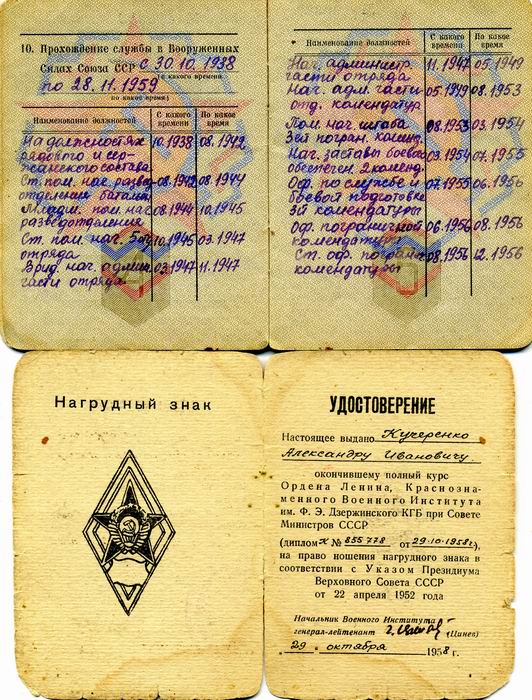 10. Прохождение службы в Вооруженных
Силах Союза ССР с 30.10.1938
(с какого времени)
по 28.11.1959
по какое время)
Наименование должностей
С какого времени
По какое время
На должностях 10.1938 08.1942
рядового и сер-
жантского состава
Ст. пом. нач. развед. 08.1942 08.1944
отделения батал.
Младш. пом. нач. 08.1944 10.1945
разведотделения
Ст. пом. нач. 5 отд 10.1945 03.1947
отряда
Врид. нач. админ. 03.1947 11.1947
части отряда
Наименование должностей
С какого времени
По какое время
Нач. администр. 11.1947 05.1949
части отряда
Нач. адм. части 05.1949 08.1953
отд. комендатур
Пом. нач. штаба 08.1953 03.1954
3й погран. коменд.
Нач. заставы боевого 03.1954 07.1955
обеспечен. 2 коменд.
Оф. по службе и 07.1955 06.1956
боевой подготовке
3й комендатуры
Оф. пограничной 06.1956 08.1956
комендатуры
Ст. оф. погранич. 08.1956 12.1956
комендатуры
Нагрудный знак
УДОСТОВЕРЕНИЕ
Настоящее выдано Кучеренко
Александру Ивановичу
окончившему полный курс
Ордена Ленина, Краснозна-
менного Военного Института
им. Ф. Э. Дзержинского КГБ при Совете
Министров СССР
(диплом И № 855778 от 29.10.1958 г.),
на право ношения нагрудного знака в
соответствии с Указом Президиума
Верховного Совета СССР
от 22 апреля 1952 года
Начальник Военного Института
генерал-лейтенант (Цинев)
29 октября 1958 г.